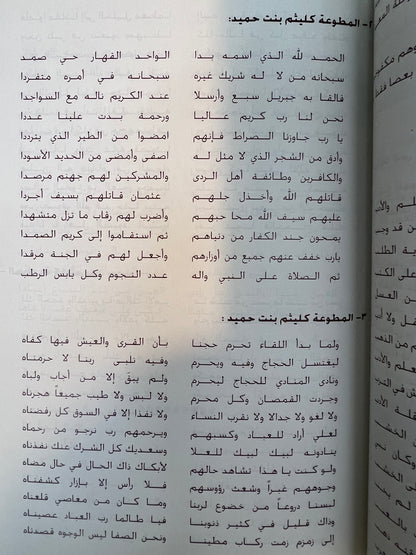 ٢- المطوعة كليثم بنت حميد:
الحمد لله الذي اسمه بدا الواحد القهار حي صمد
سبحانه من لا له شريك غيره سبحانه في أمره متفردا
فالقا به جبريل سبع وأرسلا عند الكريم تاله مع السواجدا
نحن لنا رب كريم عالياً ورحمة بدت علينا عددا
يا رب جاوزنا الصراط فإنهم امضوا من الطير الذي يترددا
وأدق من الشجر الذي لا مثل له اصفى وأمضى من الحديد الأسودا
والكافرين وطائفة أهل الردى والمشركين لهم جهنم مرصدا
قاتلهم الله وأخذل جلهم عثمان قاتلهم بسيف أجردا
عليهم سيف الله محا حبهم وأضرب لهم رقاب ما تزل متشهدا
يمحون جند الكفار من دنياهم ثم استقاموا إلى كريم الصمدا
يارب خفف عنهم جميع من أوزارهم وأجعل لهم في الجنة مرقدا
ثم الصلاة على النبي واله عدد النجوم وكل يابس الرطب
٣- المطوعة كليثم بنت حميد :
ولما بدا اللقاء تحرم حجنا بأن القرى والعيش فيها كفاه
ليغتسل الحجاج وفيه ويحرم وفيه نلبي ربنا لا حرمناه
ونادى المنادي للحجاج ليحرم ولم يبق إلا من أجاب ولباه
وجردت القمصان وكل محرم ولا لبس ولا طيب جميعاً هجرناه
ولا لغو ولا جدالا ولا نقرب النساء ولا نفذا إلا في السوق كل رفضناه
لعلي أراد للعباد وكسبهم ويرحمهم رب نرجو من رحماه
ينادونه لبيك لبيك للعلا وسعديك كل الشرك عنك نفذناه
ولو كنت يا هذا تشاهد حالهم لأبكاك ذاك الحال في حال مضاه
وجوههم غبراً وشعث رؤوسهم فلا رأس إلا بازار كشفناه
لبسنا دروعاً من خضوع لربنا وما كان من معاصي قلعناه
وذاك قليل في كثير ذنوبنا فيا طالما رب العباد عصيناه
إلى زمزم زمت ركاب مطينا ونحن الصفا ليس الوجوه قصدناه